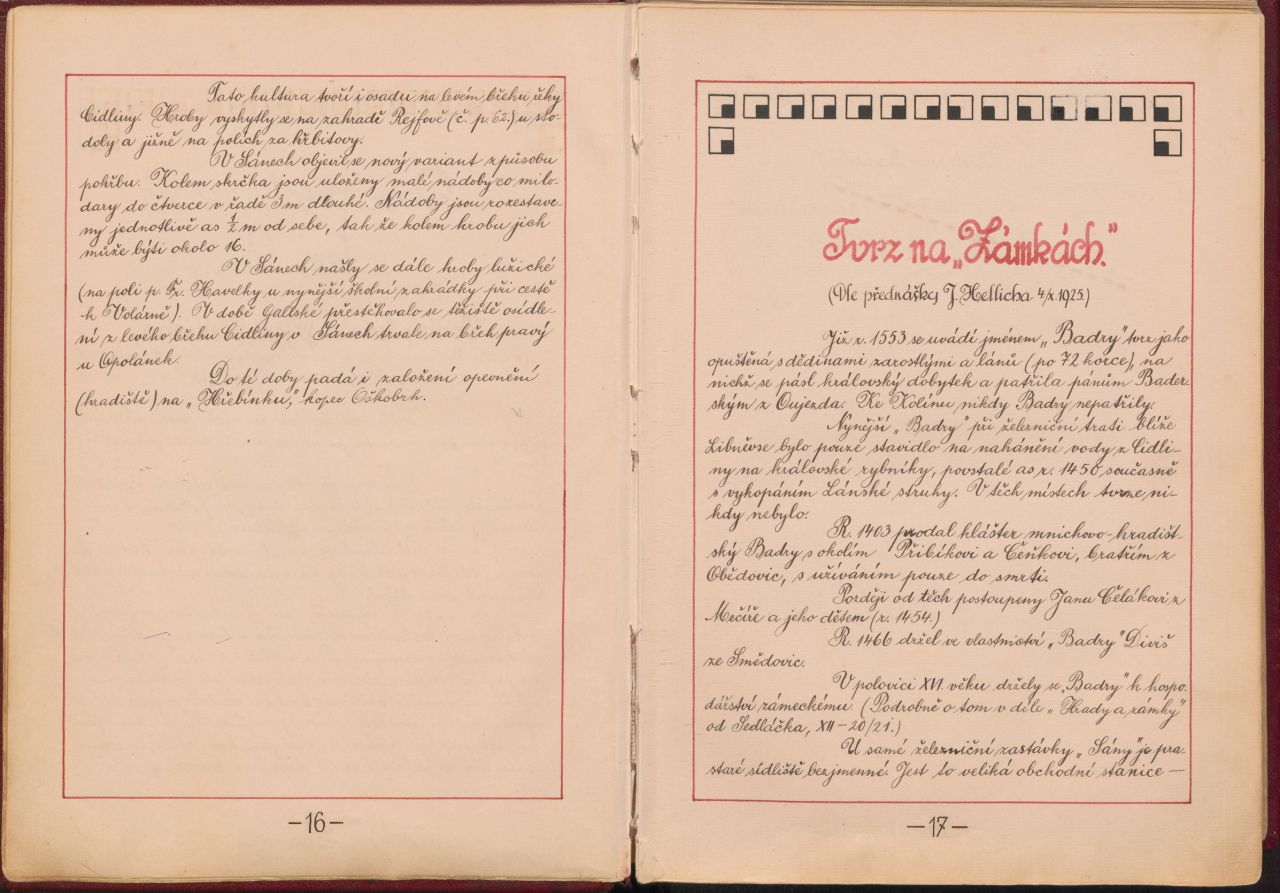 Tato kultura tvoří i osadu na levém břehu řeky
Cidliny. Hroby vyskytly se na zahradě Rejfově (č. p. 62.) u sto-
doly a jižně na polích za hřbitovy.
V Sánech objevil se nový variant způsobu
pohřbu. Kolem skrčka jsou uloženy malé nádoby co milo-
dary do čtverce v řadě 3 m dlouhé. Nádoby jsou rozestave-
ny jednotlivě as ½ m od sebe, tak že kolem hrobu jich
může býti okolo 16.
V Sánech našly se dále hroby lužické
(na poli p. Fr. Havelky u nynější školní zahrádky při cestě
k Volárně). V době Gallské přestěhovalo se těžiště osídle-
ní z levého břehu Cidliny v Sánech trvale na břeh pravý
u Opolánek.
Do té doby padá i založení opevnění
(hradiště) na „Hřebínku," kopec Oškobrh.
-16-
Tvrz na „Zámkách."
(Dle přednášky J. Hellicha 4/X 1925.)
Již r. 1553 se uvádí jménem „Badry" tvrz jako
opuštěná s dědinami zarostlými a lánů (po 72 korce), na
nichž se pásl královský dobytek a patřila pánům Bader-
ským z Oujezda. Ke Kolínu nikdy Badry nepatřily.
Nynější „Badry" při železniční trati blíže
Libněvse bylo pouze stavidlo na nahánění vody z Cidli-
ny na královské rybníky, povstalé as r. 1450 současně
s vykopáním Lánské struhy. V těch místech tvrze ni-
kdy nebylo.
R. 1403 prodal klášter mnichovo-hradišt-
ský Badry s okolím Přibíkovi a Čeňkovi, bratřím z
Obědovic, s užíváním pouze do smrti.
Později od těch postoupeny Janu Cělákovi z
Mečíře a jeho dětem (r. 1454.)
R. 1466 držel ve vlastnictví „Badry" Diviš
ze Smědovic.
V polovici XVI. věku držely se „Badry" k hospo-
dářství zámeckému. (Podrobně o tom v díle „Hrady a zámky"
od Sedláčka, XII - 20/21.)
U samé železniční zastávky „Sány" je pra-
staré sídliště bezjmenné. Jest to veliká obchodní stanice —
-17-